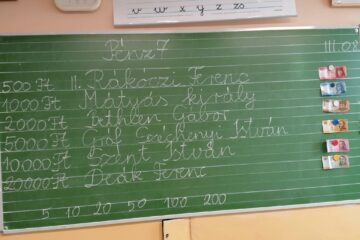 v w x y z zs
Pénz7
III.08
500 Ft II. Rákóczi Ferenc
1000 Ft Mátyás király
2000 Ft Bethlen Gábor
5000 Ft Gróf Széchenyi István
10000 Ft Szent István
20000 Ft Deák Ferenc
5 10 20 50 100 200